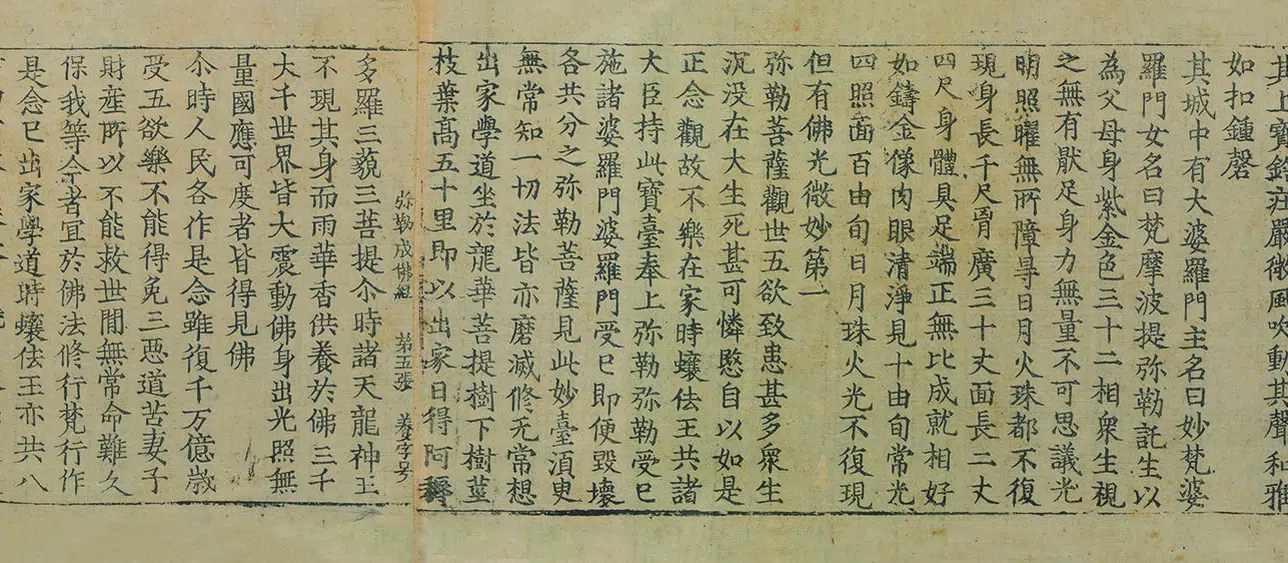 其上寶鈴莊嚴微風吹動其聲和雅
如扣鍾磬
其城中有大婆羅門主名曰妙梵婆
羅門女名曰梵摩波提弥勒託生以
為父母身紫金色三十二相衆生視
之無有猒足身力無量不可思議光
明照曜無所障㝵日月火珠都不復
現身長千尺胷廣三十丈面長二丈
四尺身體具足端正無比成就相好
如鑄金像肉眼清淨見十由旬常光
四照面百由旬日月珠火光不復現
但有佛光微妙第一
弥勒菩薩觀世五欲致患甚多衆生
沉没在大生死甚可憐愍自以如是
正念觀故不樂在家時蠰佉王共諸
大臣持此寶臺奉上弥勒弥勒受已
施諸婆羅門婆羅門受已即便毀壞
各共分之弥勒菩薩見此妙臺湏臾
無常知一切法皆亦磨滅修无常想
出家學道坐於龍華菩提樹下樹莖
枝葉髙五十里即以出家日得阿耨
弥勒成佛經 第五張 養字号
多羅三藐三菩提尒時諸天龍神王
不現其身而雨華香供養於佛三千
大千世界皆大震動佛身出光照無
量國應可度者皆得見佛
尒時人民各作是念雖復千万億歳
受五欲樂不能得免三惡道苦妻子
財産所以不能救世間無常命難久
保我等今者宜於佛法修行梵行作
是念已出家學道時蠰佉王亦共八